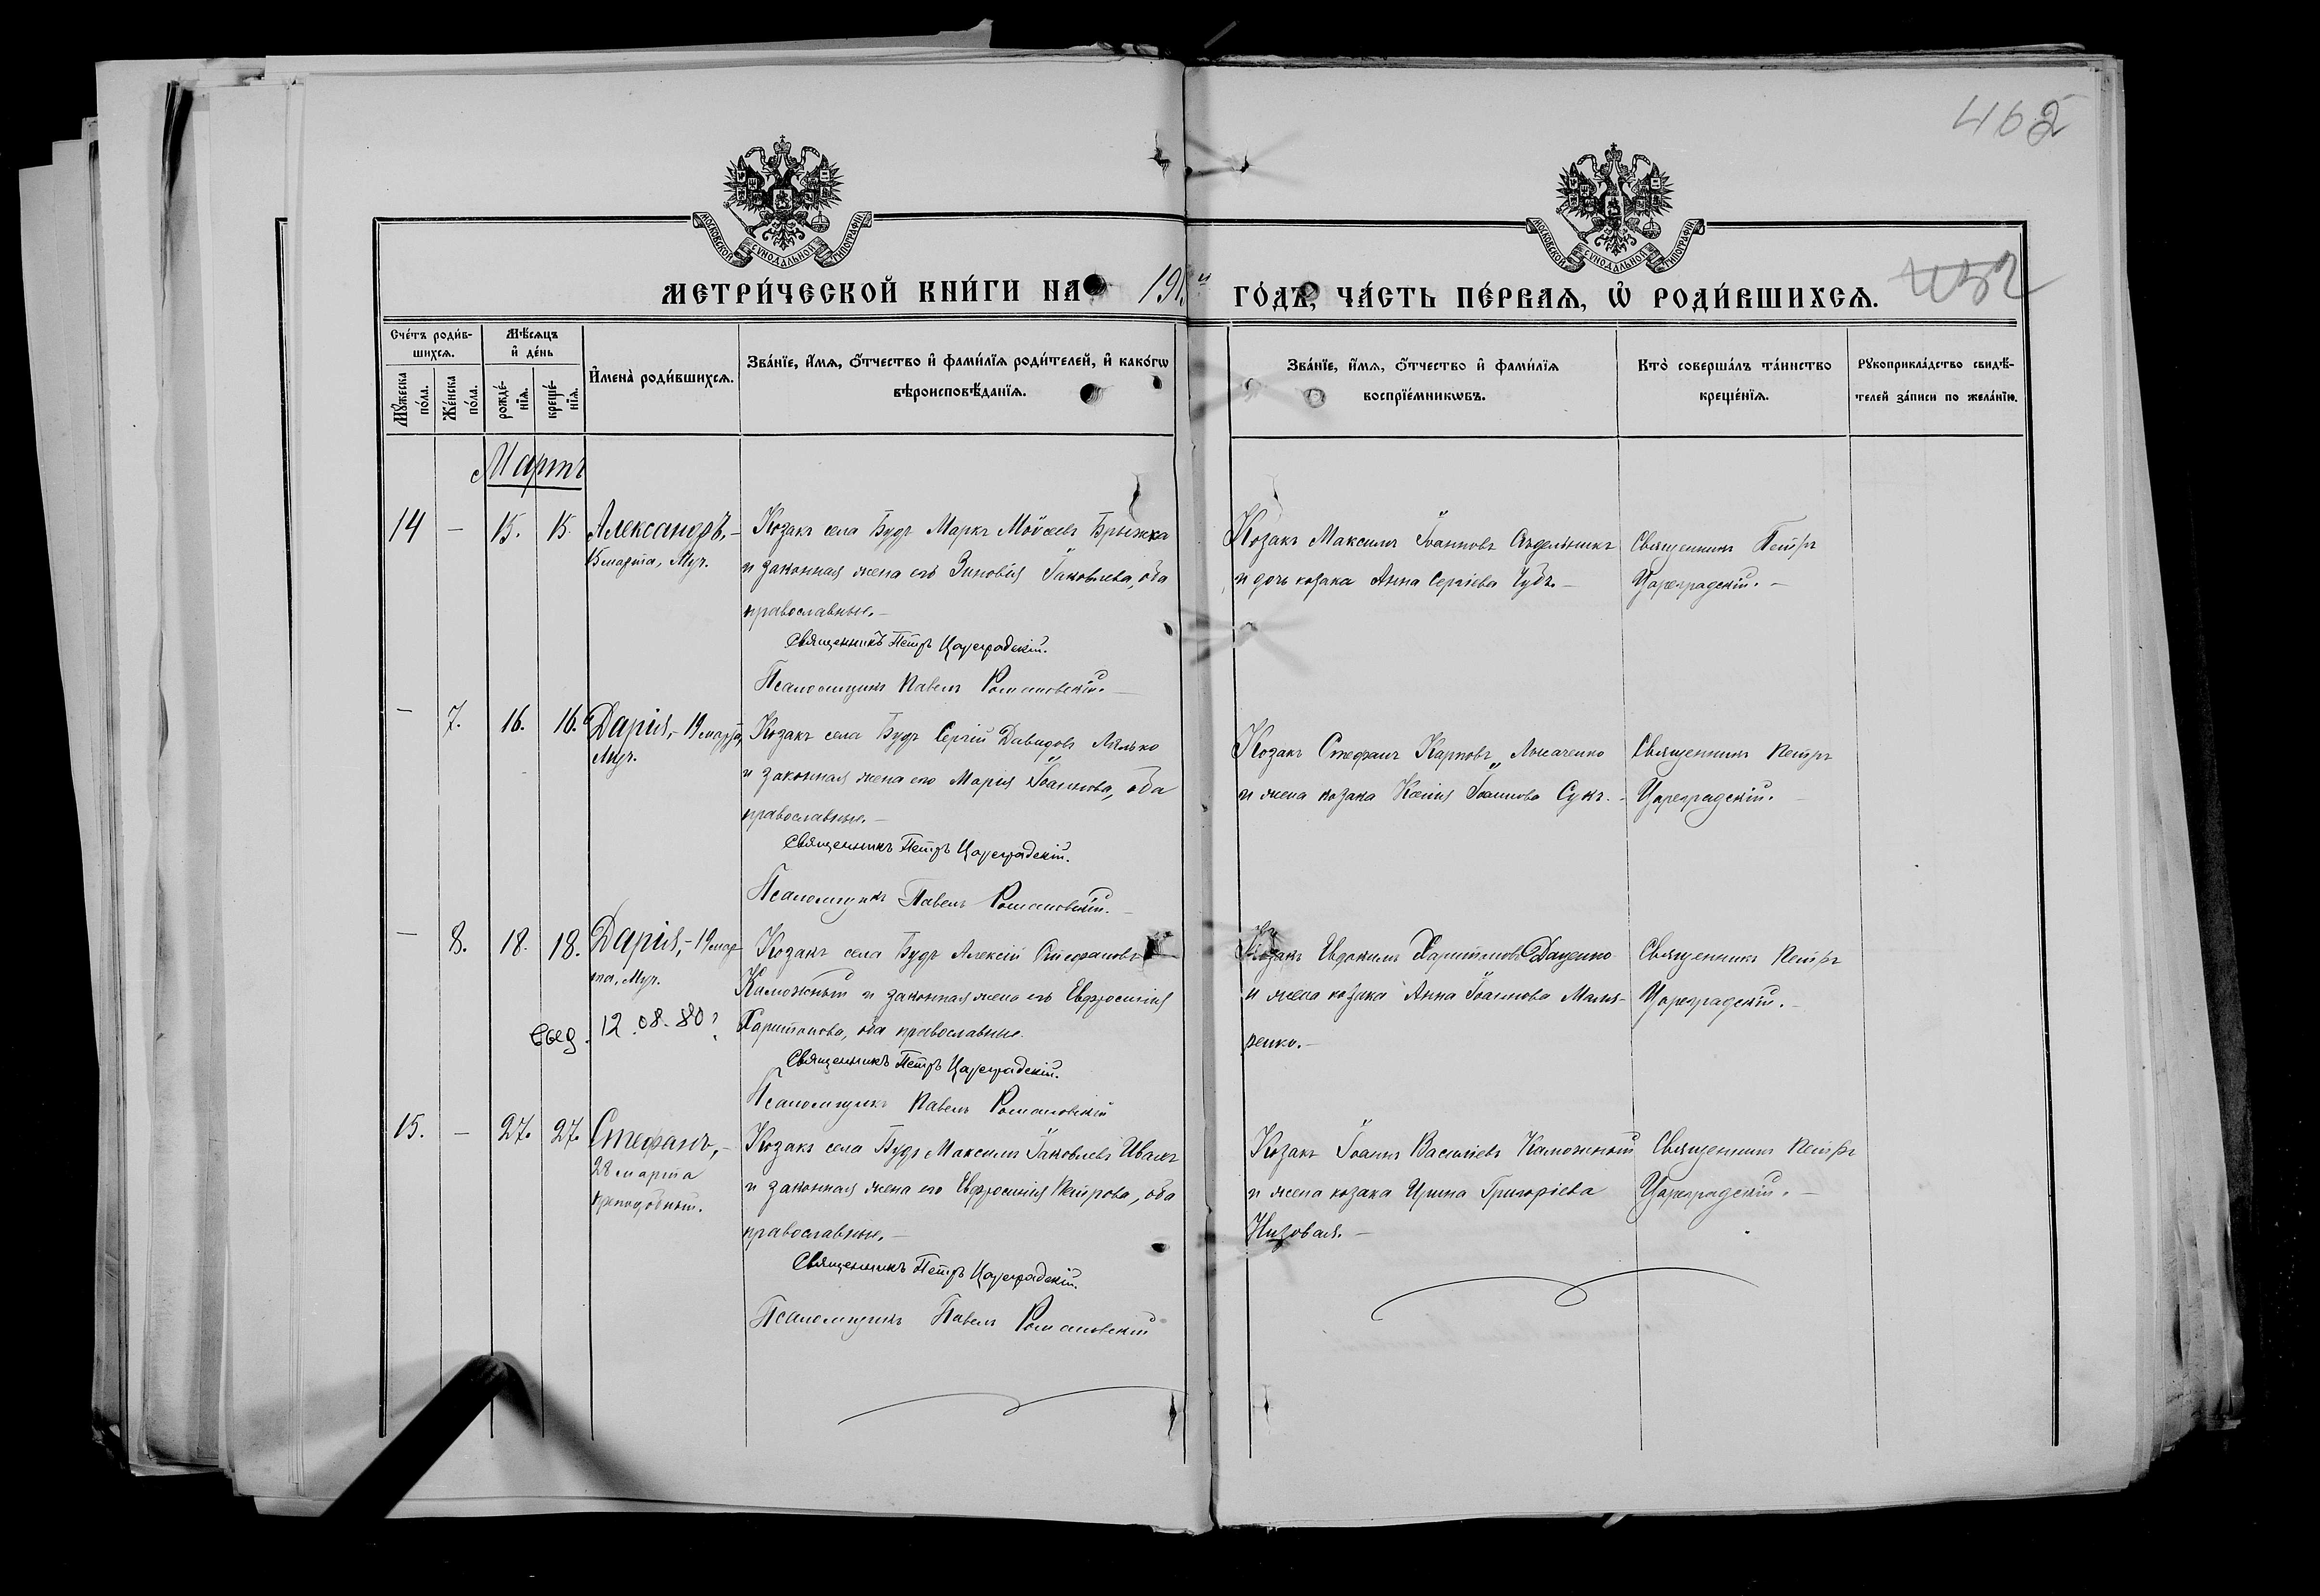 462
МОСКОВСКОЙ СѴНОДАЛЬНОЙ ТИПОГРАФІИ
МОСКОВСКОЙ СѴНОДАЛЬНОЙ ТИПОГРАФІИ
МЕТРИ́ЧЕСКОЙ КНИ́ГИ НА 191
ГО́ДЪ, ЧА́СТЬ ПЕ́РВАѦ, Ѡ҆ РОДИ́ВШИХСѦ.
Сче́тъ роди́в-
шихсѧ.
Мѣ́сѧцъ
и҆ де́нь
Мꙋ́жеска по́ла.
Же́нска по́ла.
рожде́-нїѧ.
креще́-нїѧ.
И҆мена̀ роди́вшихсѧ.
Зва́нїе, и҆́мѧ, ѻ҆́тчество и҆ фами́лїѧ роди́телей, и҆ како́гѡ
вѣроисповѣ́данїѧ.
Зва́нїе, и҆́мѧ, ѻ҆́тчество и҆ фами́лїѧ
воспрїе́мникѡвъ.
Кто̀ соверша́лъ та́инство
креще́нїѧ.
Рꙋкоприкла́дство свидѣ́-
телей за́писи по жела́нїю.
Мартъ
14 — 15. 15. Александръ, —
15 марта, Муч.
Козакъ села Будъ Маркъ Мойсеевъ Брынжа
и законная жена его Зиновія Іаковлева, оба
православные. —
Священникъ Петръ Цареградскій.
Псаломщикъ Павелъ Романовскій. —
Козакъ Максимъ Іоанновъ
и дочь козака Анна Сергіева Чубъ. —
Священникъ Петръ
Цареградскій. —
— 7. 16. 16. Дарія, — 19 марта,
Муч.
Козакъ села Будъ Сергій Давидовъ Лялько
и законная жена его Марія Іоаннова, оба
православные. —
Священникъ Петръ Цареградскій.
Псаломщикъ Павелъ Романовскій. —
Козакъ Стефанъ Карповъ
и жена козака Ксенія Іоаннова Сукъ. —
Священникъ Петръ
Цареградскій. —
— 8. 18. 18. Дарія, — 19 мар-
та, Муч.
свед. 12.08.80
Козакъ села Будъ Алексій Стефановъ
Каможный и законная жена его Евфросинія
Харитонова, оба православные.
Священникъ Петръ Цареградскій.
Псаломщикъ Павелъ Романовскій
Козакъ Евдокимъ Харитоновъ Даценко
и жена козака Анна Іоаннова Маля-
ренко. —
Священникъ Петръ
Цареградскій. —
15. — 27. 27. Стефанъ, —
28 марта
преподобный.
Козакъ села Будъ Максимъ Іаковлевъ Ивахъ
и законная жена его Евфросинія Петрова, оба
православные. —
Священникъ Петръ Цареградскій.
Псаломщикъ Павелъ Романовскій
Козакъ Іоаннъ Васильевъ Каможный
и жена козака Ирина Григоріева
Низовая. —
Священникъ Петръ
Цареградскій. —